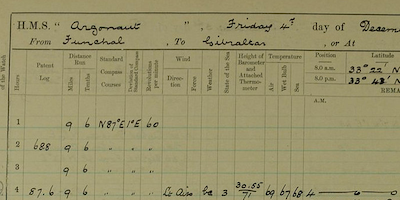 H.M.S. " Argonaut ", Friday 4th day of Decem
From Funchal, To Gibraltar, or At
Hours
Patent Log
Distance Run
Miles Tenths
Standard Compass Courses
Deviation of Standard Compass
Revolutions per minute
Wind
Direction Force
Weather
State of the Sea
Height of Barometer and Attached Thermometer
Temperature
Air Wet Bulb Sea
Position Latitude
8.0 a.m. 33° 22' N
8.0 p.m. 33° 43' N
REMA
A.M.
1 9 6 N87°E 1°E 60
2 688 9 6 " " "
3 9 6 " " "
4 87.6 9 6 " " " Lt Airs bc 3 30.55 71 69 67 68 4 6 0